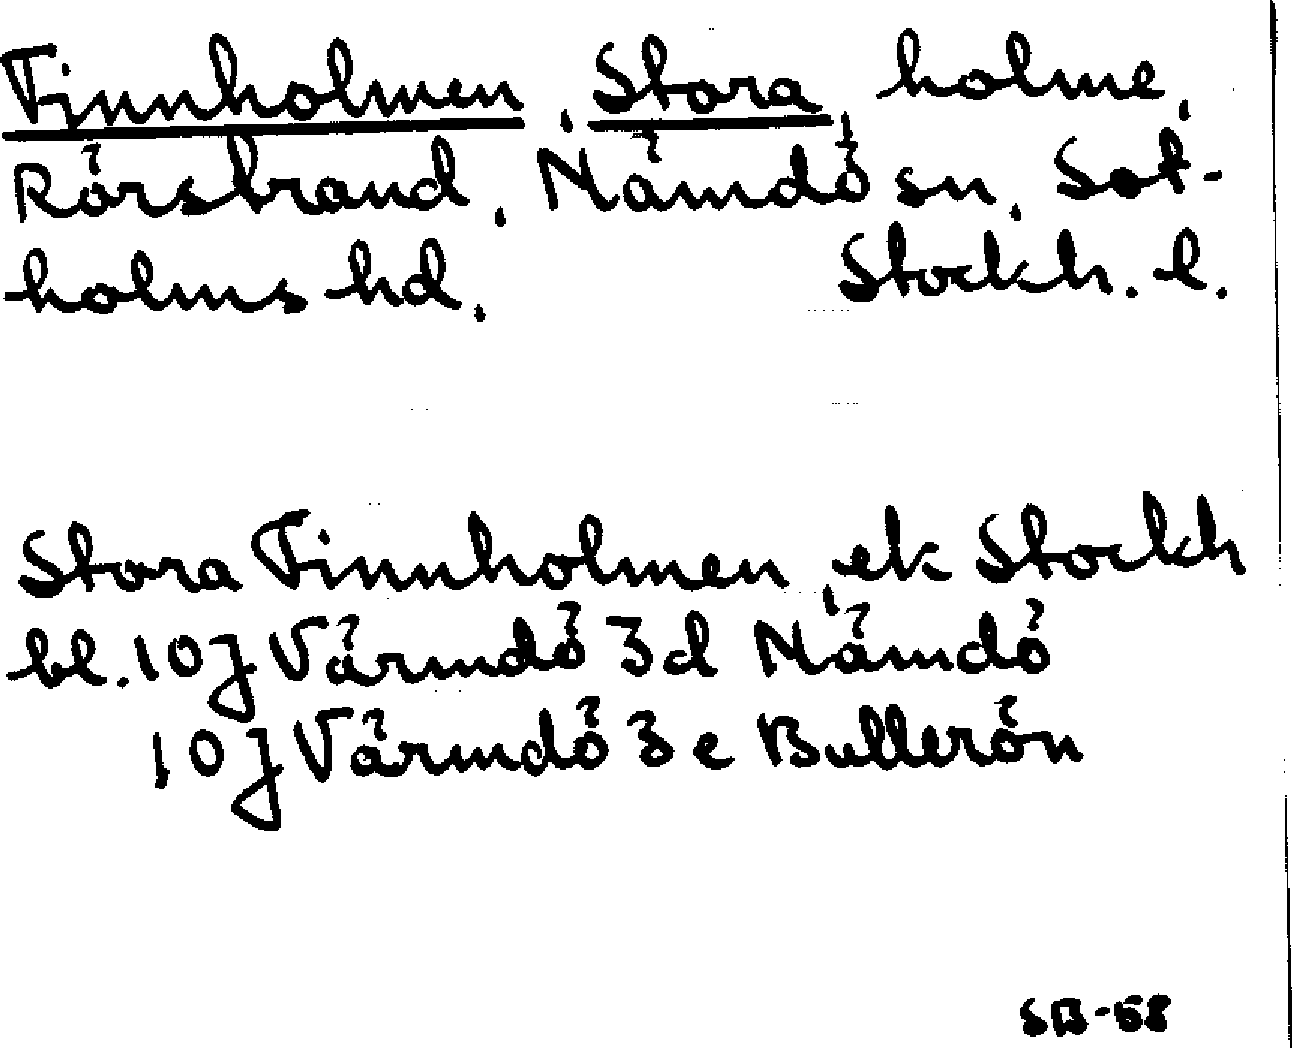 Finnholmen, Stora, holme,
Rörstrand, Nämdö sn, Sot-
holms hd. Stockh. l.
Stora Finnholmen, ek Stockh
bl. 10J Värmdö 3d Nämdö
10J Värmdö 3e Bullerön
SB-58